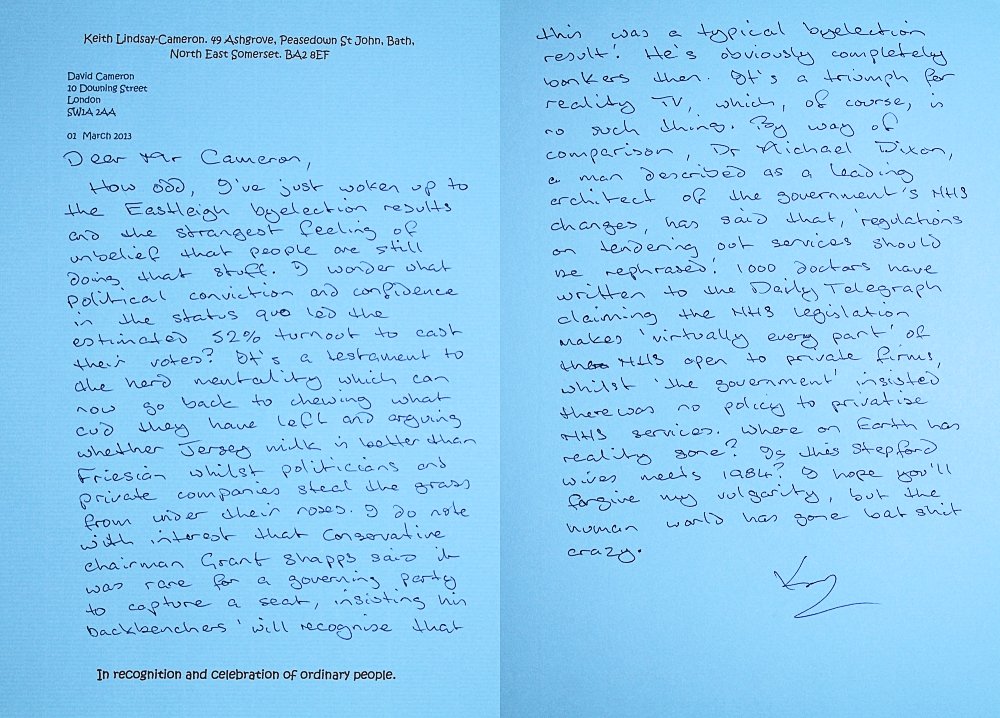 Keith Lindsay-Cameron. 49 Ashgrove, Peasedown St John, Bath,
North East Somerset. BA2 8EF
David Cameron
10 Downing Street
London
SW1A 2AA
01 March 2013
Dear Mr Cameron,
How odd, I've just woken up to
the Eastleigh byelection results
and the strangest feeling of
unbelief that people are still
doing that stuff. I wonder what
political conviction and confidence
in the status quo led the
estimated 52% turnout to cast
their votes? It's a testament to
the herd mentality which can
now go back to chewing what
cud they have left and arguing
whether Jersey milk is better than
Friesian whilst politicians and
private companies steal the grass
from under their noses. I do note
with interest that Conservative
chairman Grant Shapps said it
was rare for a governing party
to capture a seat, insisting his
backbenchers 'will recognise that
In recognition and celebration of ordinary people.
this was a typical byelection
result'. He's obviously completely
bonkers then. It's a triumph for
reality TV, which, of course, is
no such thing. By way of
comparison, Dr Michael Dixon,
a man described as a leading
architect of the government's NHS
changes, has said that, 'regulations
on tendering out services should
be rephrased'. 1000 doctors have
written to the Daily Telegraph
claiming the NHS legislation
makes 'virtually every part' of
the NHS open to private firms,
whilst 'the government' insisted
there was no policy to privatise
NHS services. Where on Earth has
reality gone? Is this Stepford
wives meets 1984? I hope you'll
forgive my vulgarity, but the
human world has gone bat shit
crazy.